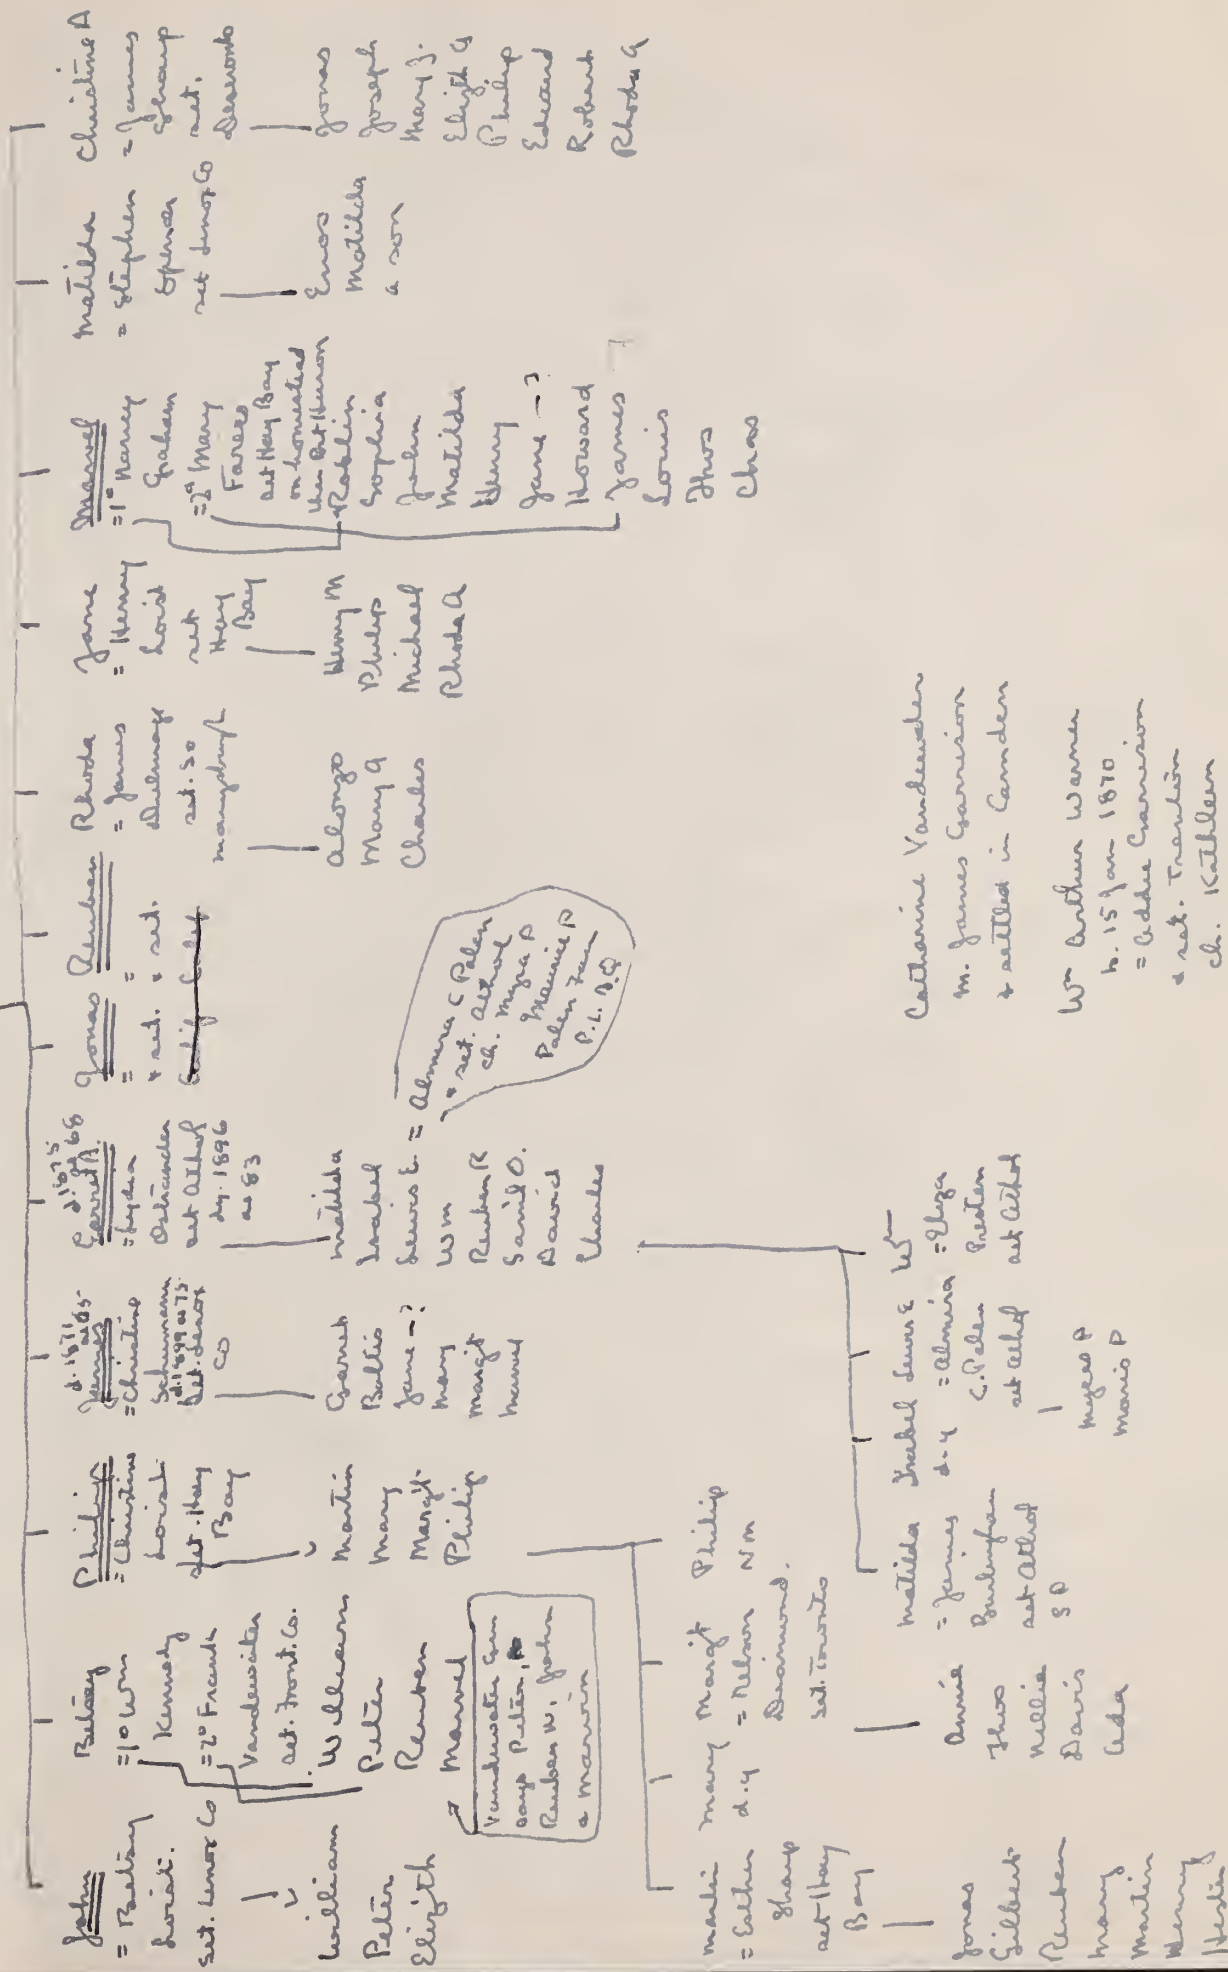 John
= Betsey
Loist.
set. Lenox Co
William
Peter
Elizth
Betsey
=1º Wm
Kennedy
=2º Frank
Vandewater
set. Front. Co.
William
Peter
Reuben
Marvel
Vandewater Gen
says Peter,
Reuben W, John
& Marvin
Philip
= Christine
Loist.
set. Hay
Bay
Martin
Mary
Margt.
Philip
d. 1871
ae 65
James
= Christine
Schumann
d. 1899 ae 75
set. Lenox
Co
Garret
Bultis
Jane - ?
Mary
Margt
Marvel
d. 1875
ae 68
Garret A.
= Lydia
Ostrander
set Athol
dy. 1896
ae 83
Matilda
Isabel
Lewis E. = Almira C Palen
Wm
Reuben R
Saml O.
David
Charles
& set. Athol
ch. Myra P
Maurice P
Palen Fam
P.L. D.Q
Jonas
=
& set.
Reuben
=
& set.
Calif
Rhoda
= James
Dulmage
set. So
Marysburgh
Alonzo
Mary A
Charles
Jane
= Henry
Loist
set
Hay
Bay
Henry M
Philip
Michael
Rhoda A
Marvel
=1º Nancy
Graham
=2º Mary
Farero
set Hay Bay
on homestead
then Pet Huron
Roblin
Sophia
John
Matilda
Henry
Jane - ?
Howard
James
Louis
Thos
Chas
Matilda
= Stephen
Spencer
set Lenox Co
Enos
Matilda
a son
Christine A
= James
Sharp
set.
Deseronto
Jonas
Joseph
Mary J.
Elizth A
Philip
Edward
Robert
Rhoda A
Martin
= Esther
Sharp
set Hay
Bay
Jonas
Gilbert
Reuben
Mary
Martin
Henry
Mary
d. y
Margt
= Nelson
Diamond.
set. Toronto
Philip
Nm
Annie
Thos
Nellie
Davis
Ada
Matilda
= James
set Athol
SP
Isabel
d. y
Lewis E
= Almira
C. Palen
set Athol
Myra P
Moris P
Wm
= Eliza
Preston
set Athol
Catharine Vandewater
m. James Garrison
& settled in Camden
Wm Arthur Warner
b. 15 Jan 1870
= Addie Garrison
& set. Trenton
ch. Kathleen